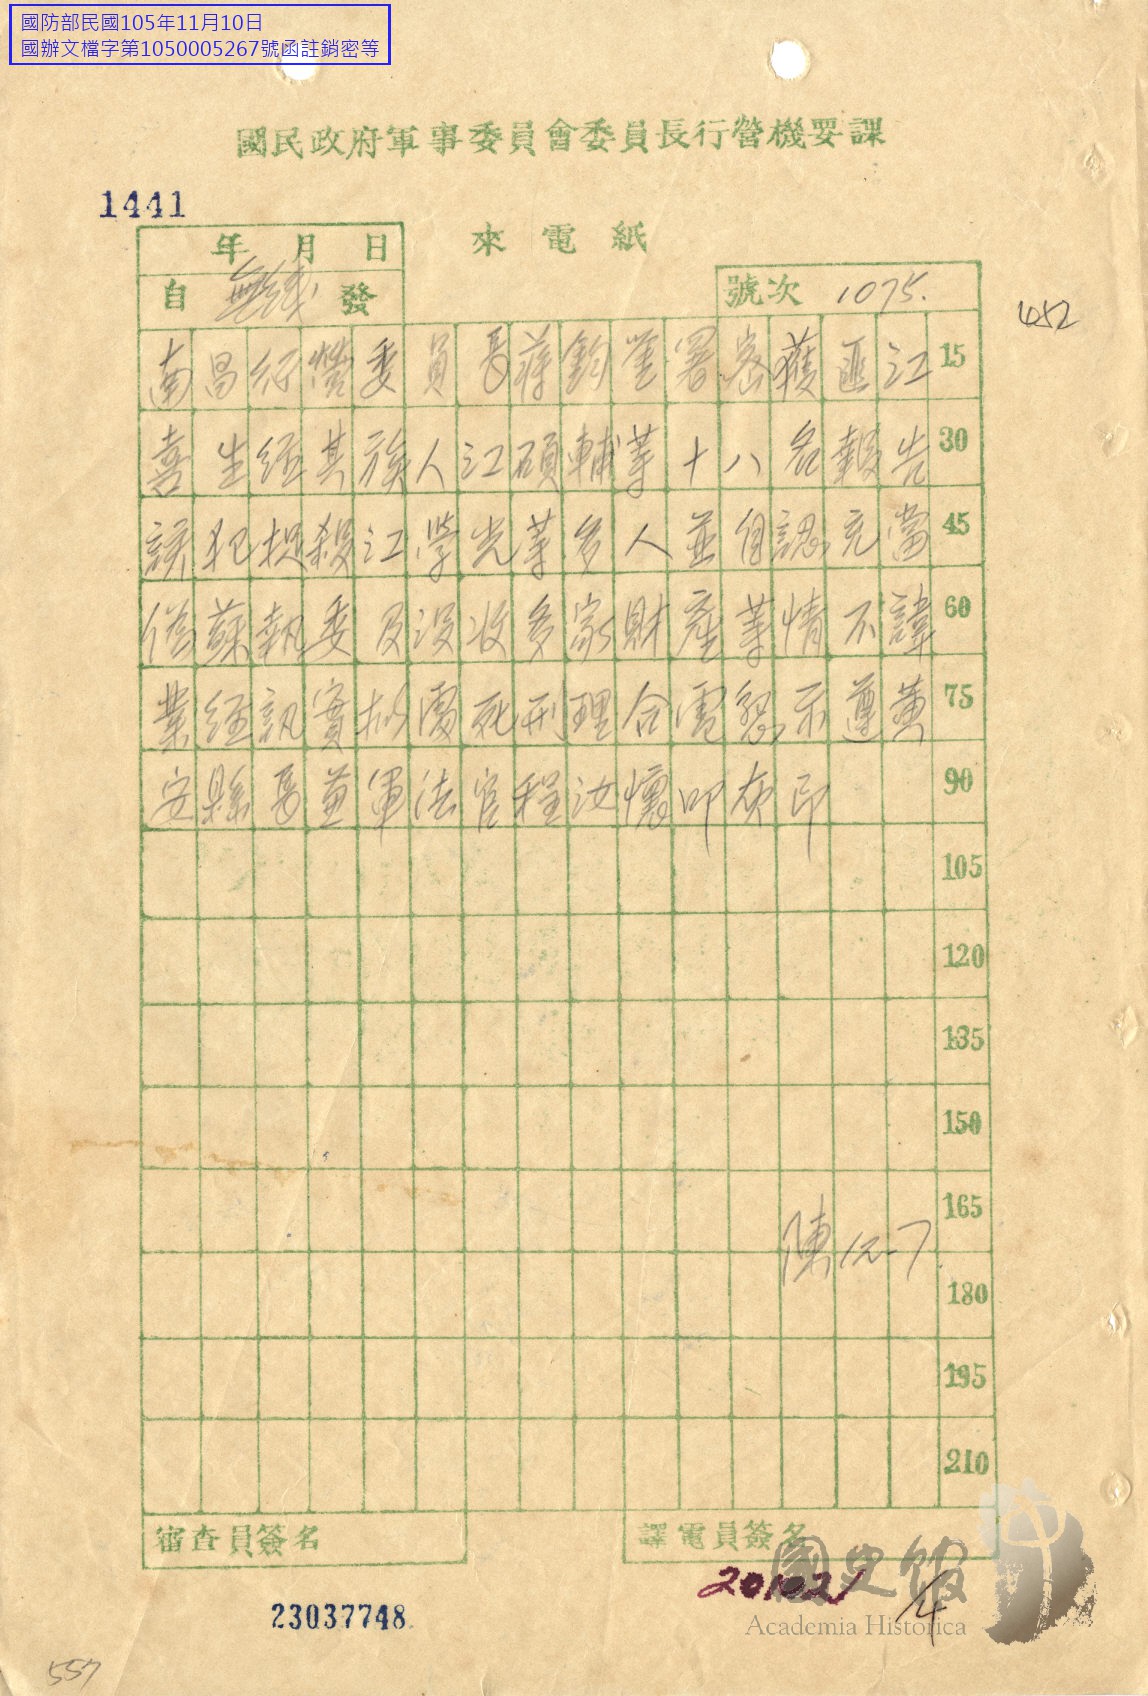 國防部民國105年11月10日
國辦文檔字第1050005267號函註銷密等
國民政府軍事委員會委員長行營機要課
1441
來電紙
年月日
自無線發
號次 1075.
452
南昌行營委員長蔣鈞鑒署密獲匪江 15
喜生經其族人江碩輔等十八名報告 30
該犯捉殺江學光等多人並自認充當 45
偽蘇執委及沒收多家財產等情不諱 60
業經訊實擬處死刑理合電懇示遵黃 75
安縣長兼軍法官程汝懷叩灰印 90
105
120
135
150
165
陳
180
195
210
審查員簽名
譯電員簽名
國史館
Academia Historica
201021
1/4
23037748
557